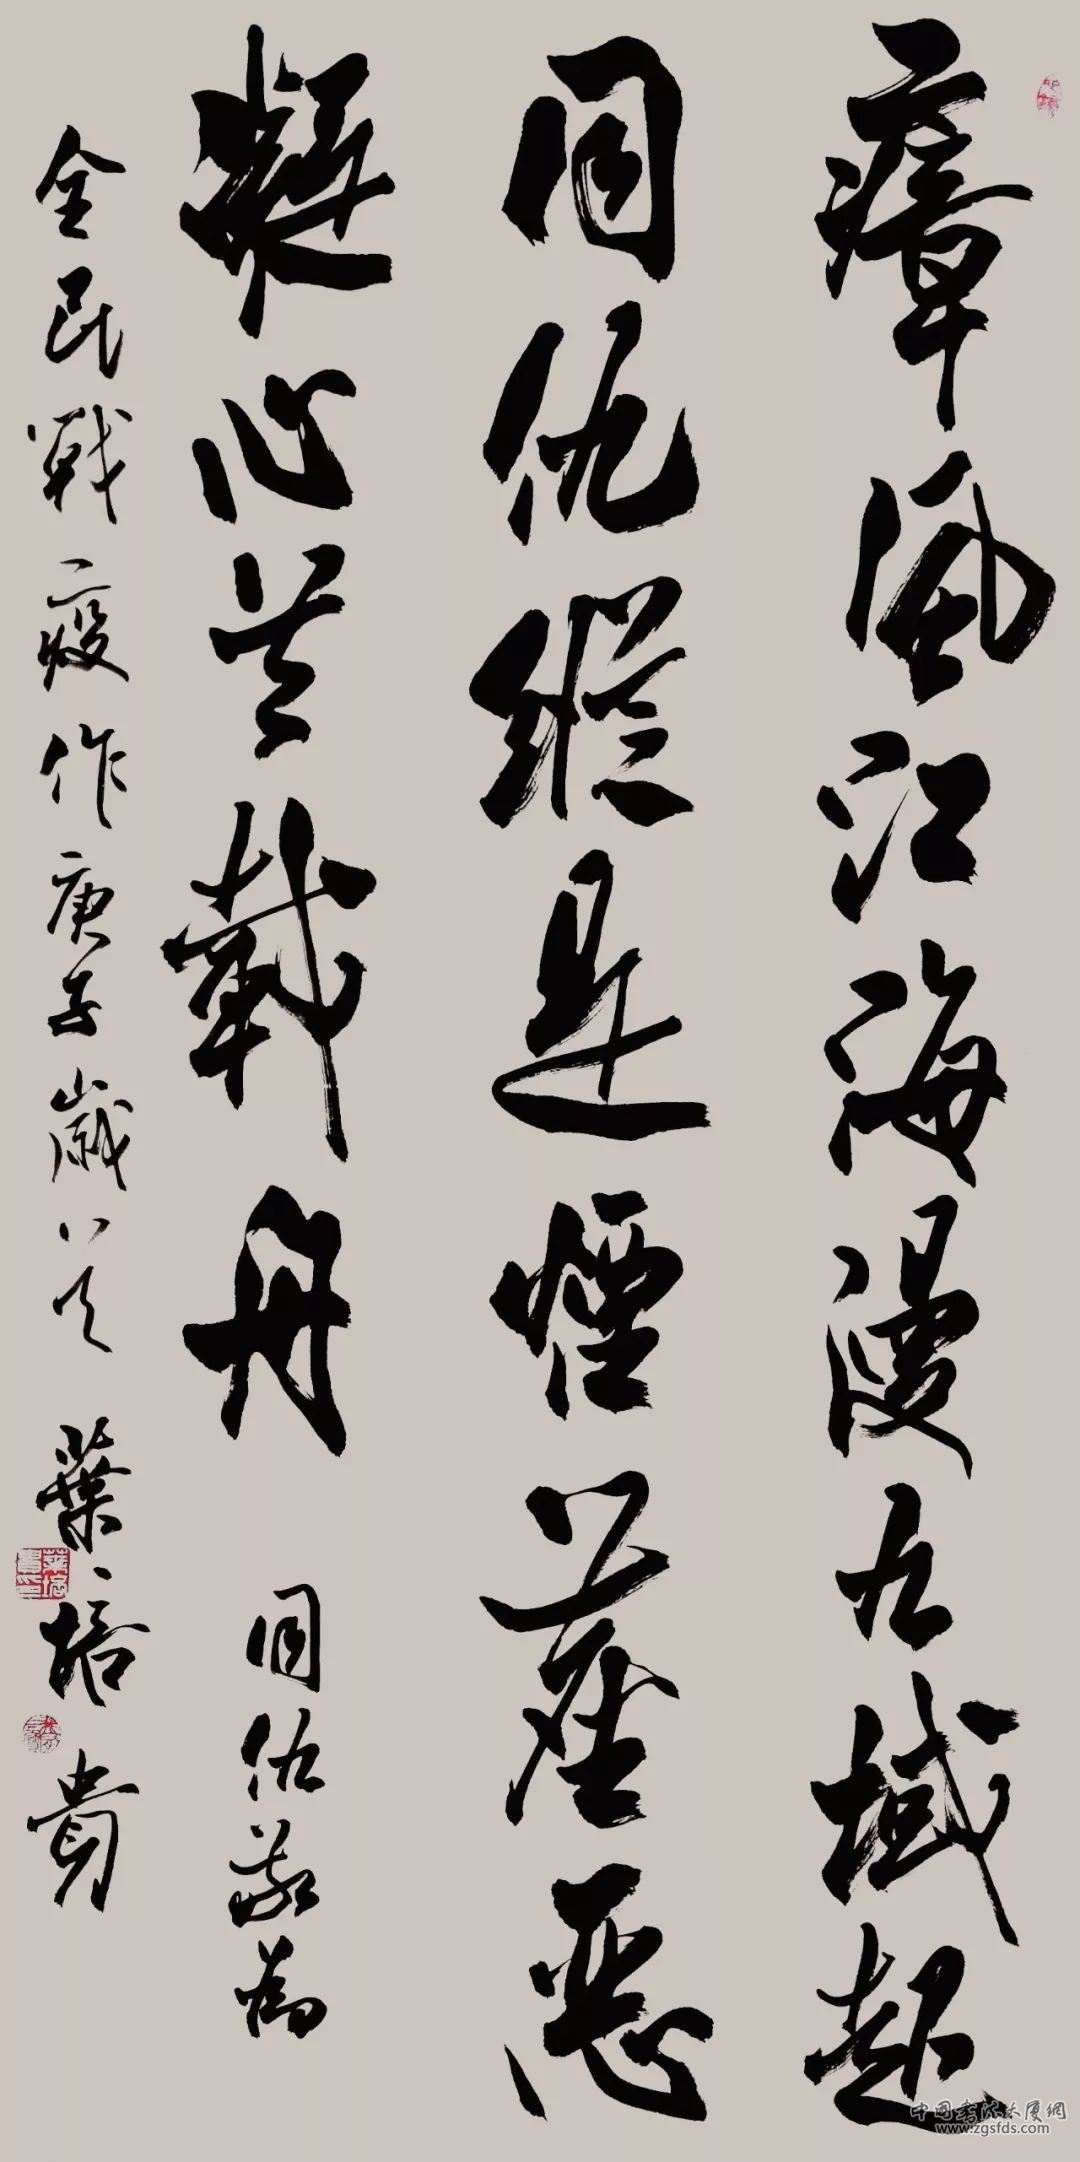 瘴風江海漫九域起
同仇縱是煙塵惡
凝心共載舟 同仇敬為
全民戰疫作庚子歲 葉培貴
中國書法大廈網
www.zgsfds.com